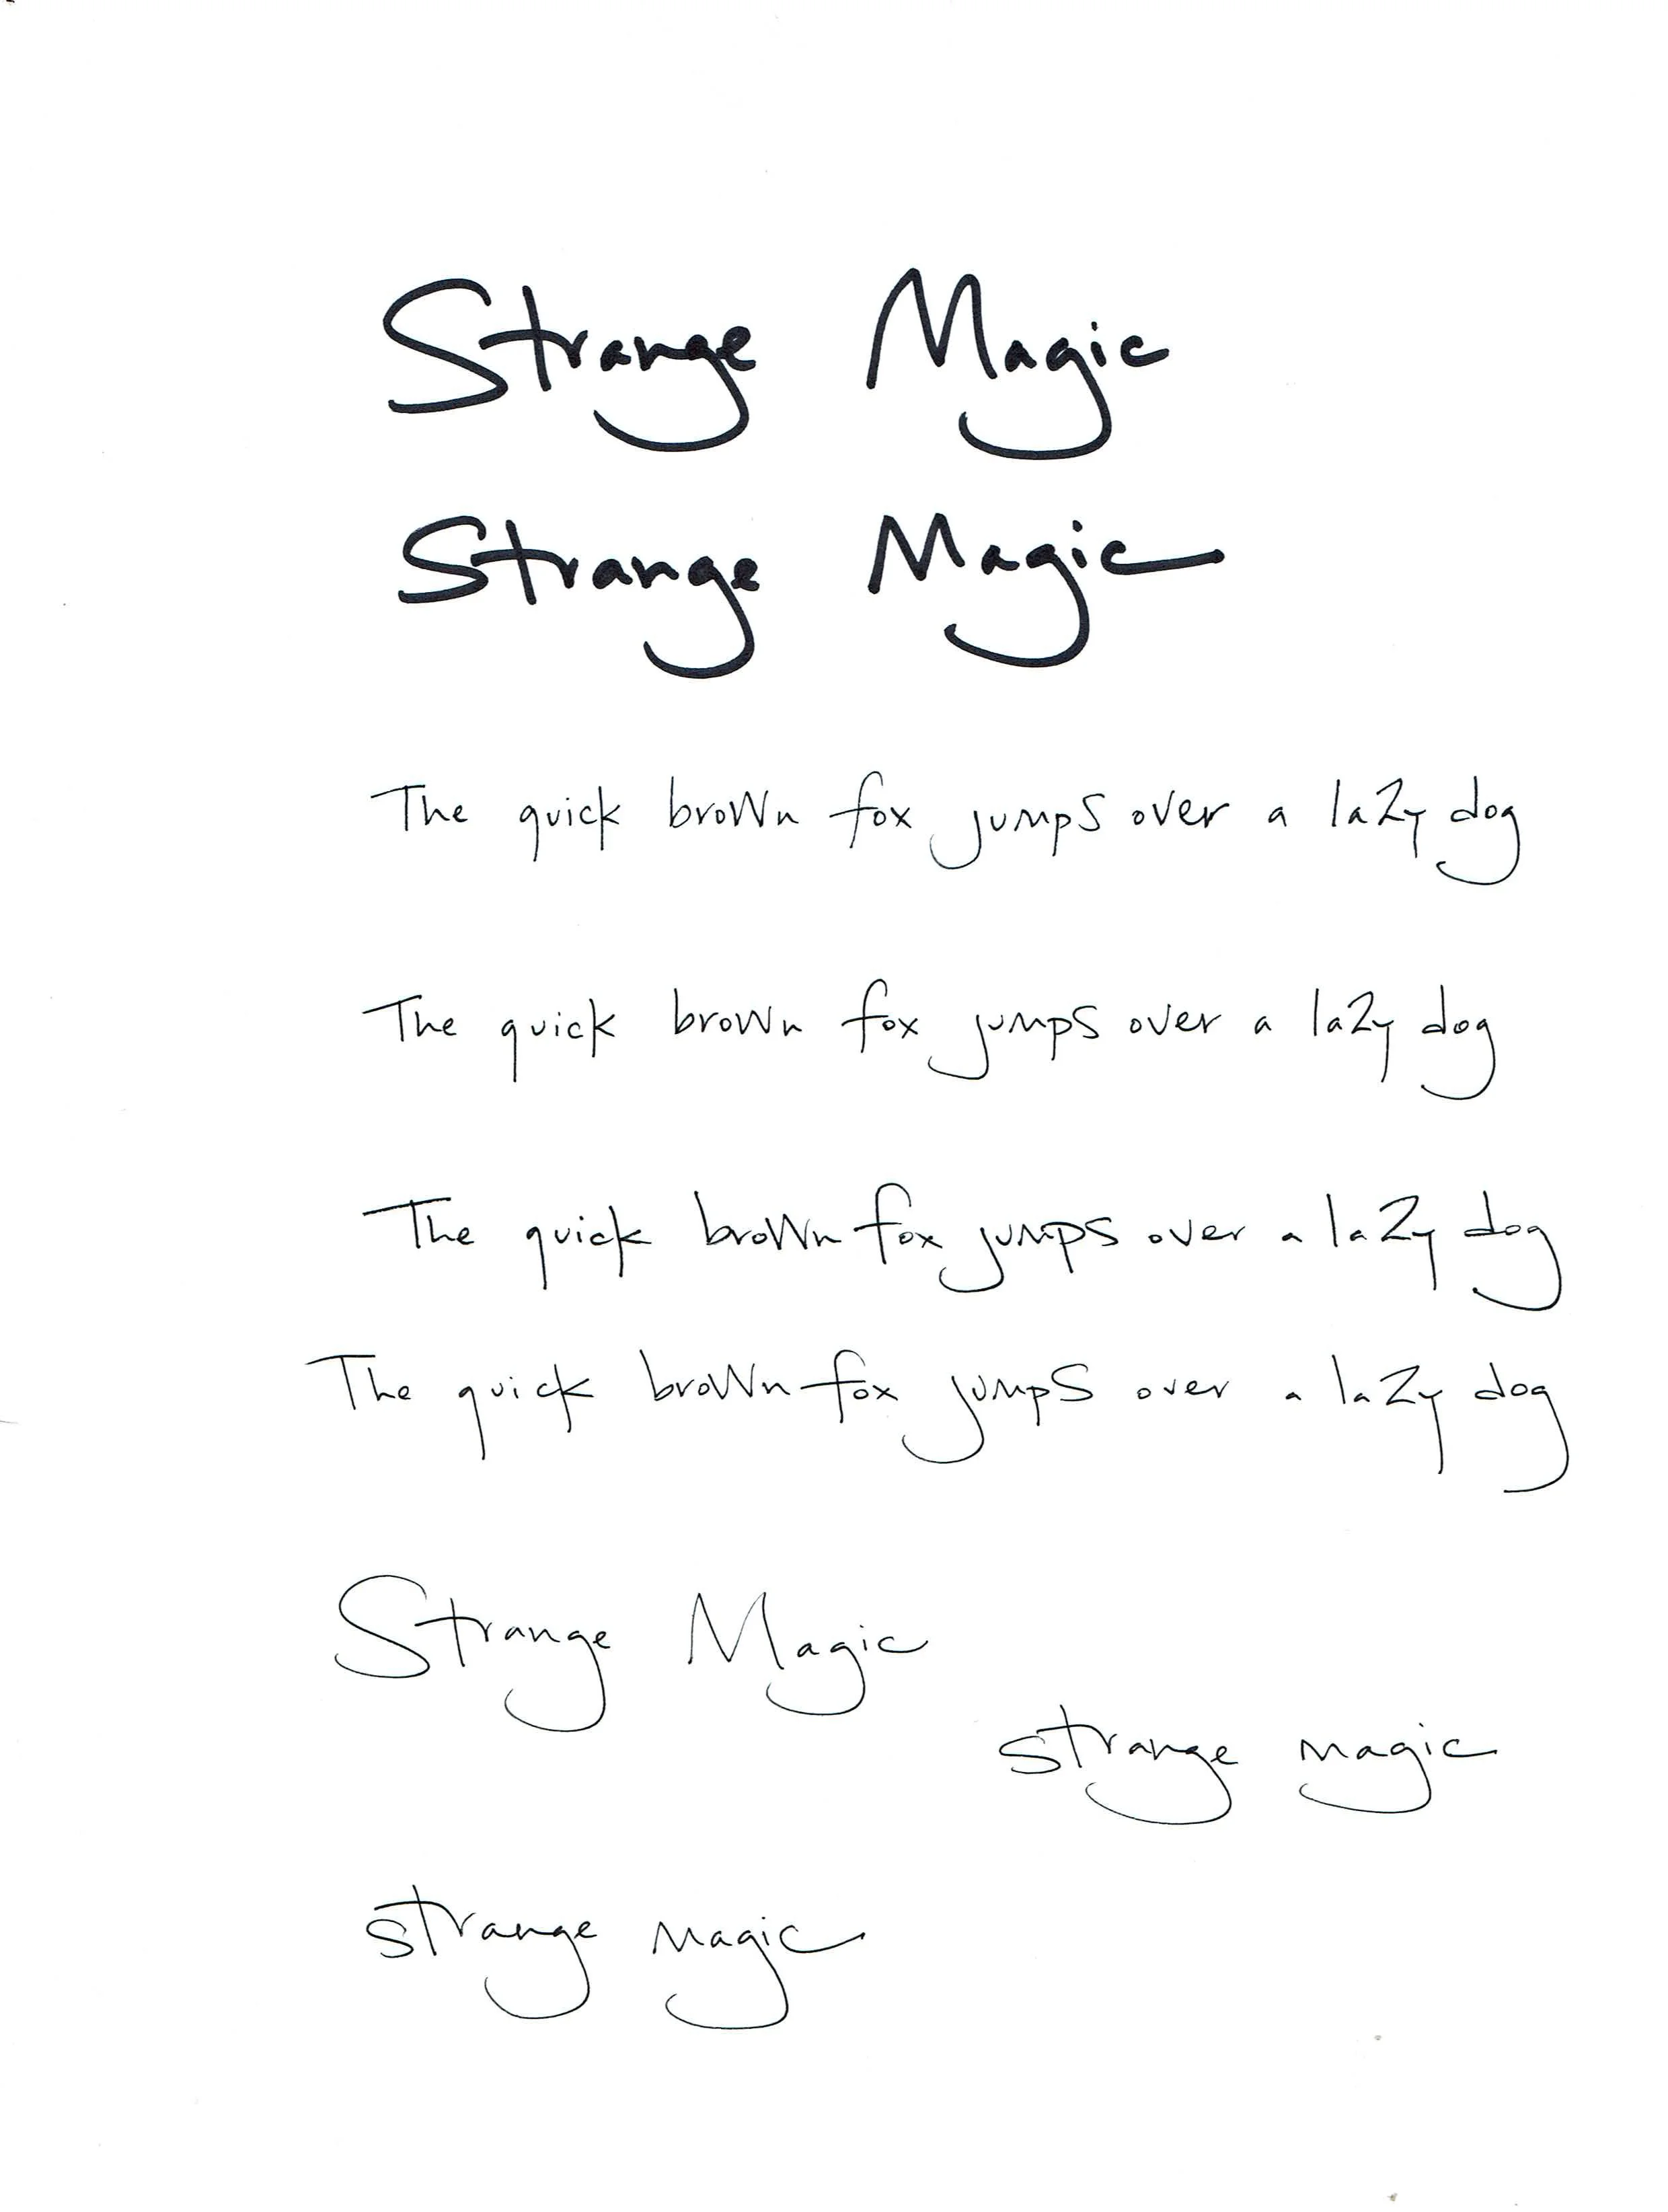 Strange Magic
Strange Magic
The quick brown fox jumps over a lazy dog
The quick brown fox jumps over a lazy dog
The quick brown fox jumps over a lazy dog
The quick brown fox jumps over a lazy dog
Strange Magic
strange magic
strange magic